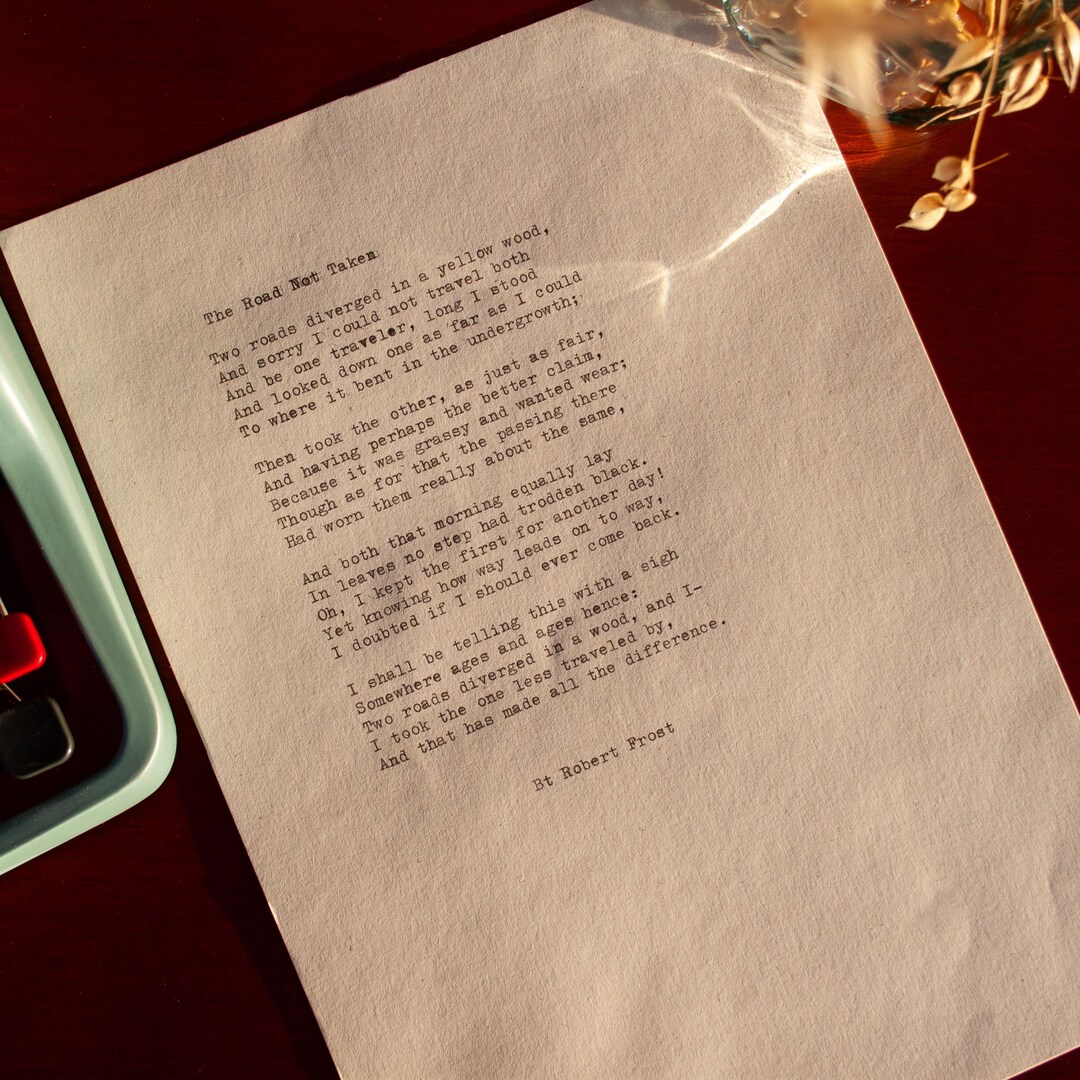 The Road Not Taken
Two roads diverged in a yellow wood,
And sorry I could not travel both
And be one traveler, long I stood
And looked down one as far as I could
To where it bent in the undergrowth;
Then took the other, as just as fair,
And having perhaps the better claim,
Because it was grassy and wanted wear;
Though as for that the passing there
Had worn them really about the same,
And both that morning equally lay
In leaves no step had trodden black.
Oh, I kept the first for another day!
Yet knowing how way leads on to way,
I doubted if I should ever come back.
I shall be telling this with a sigh
Somewhere ages and ages hence:
Two roads diverged in a wood, and I-
I took the one less traveled by,
And that has made all the difference.
Bt Robert Frost